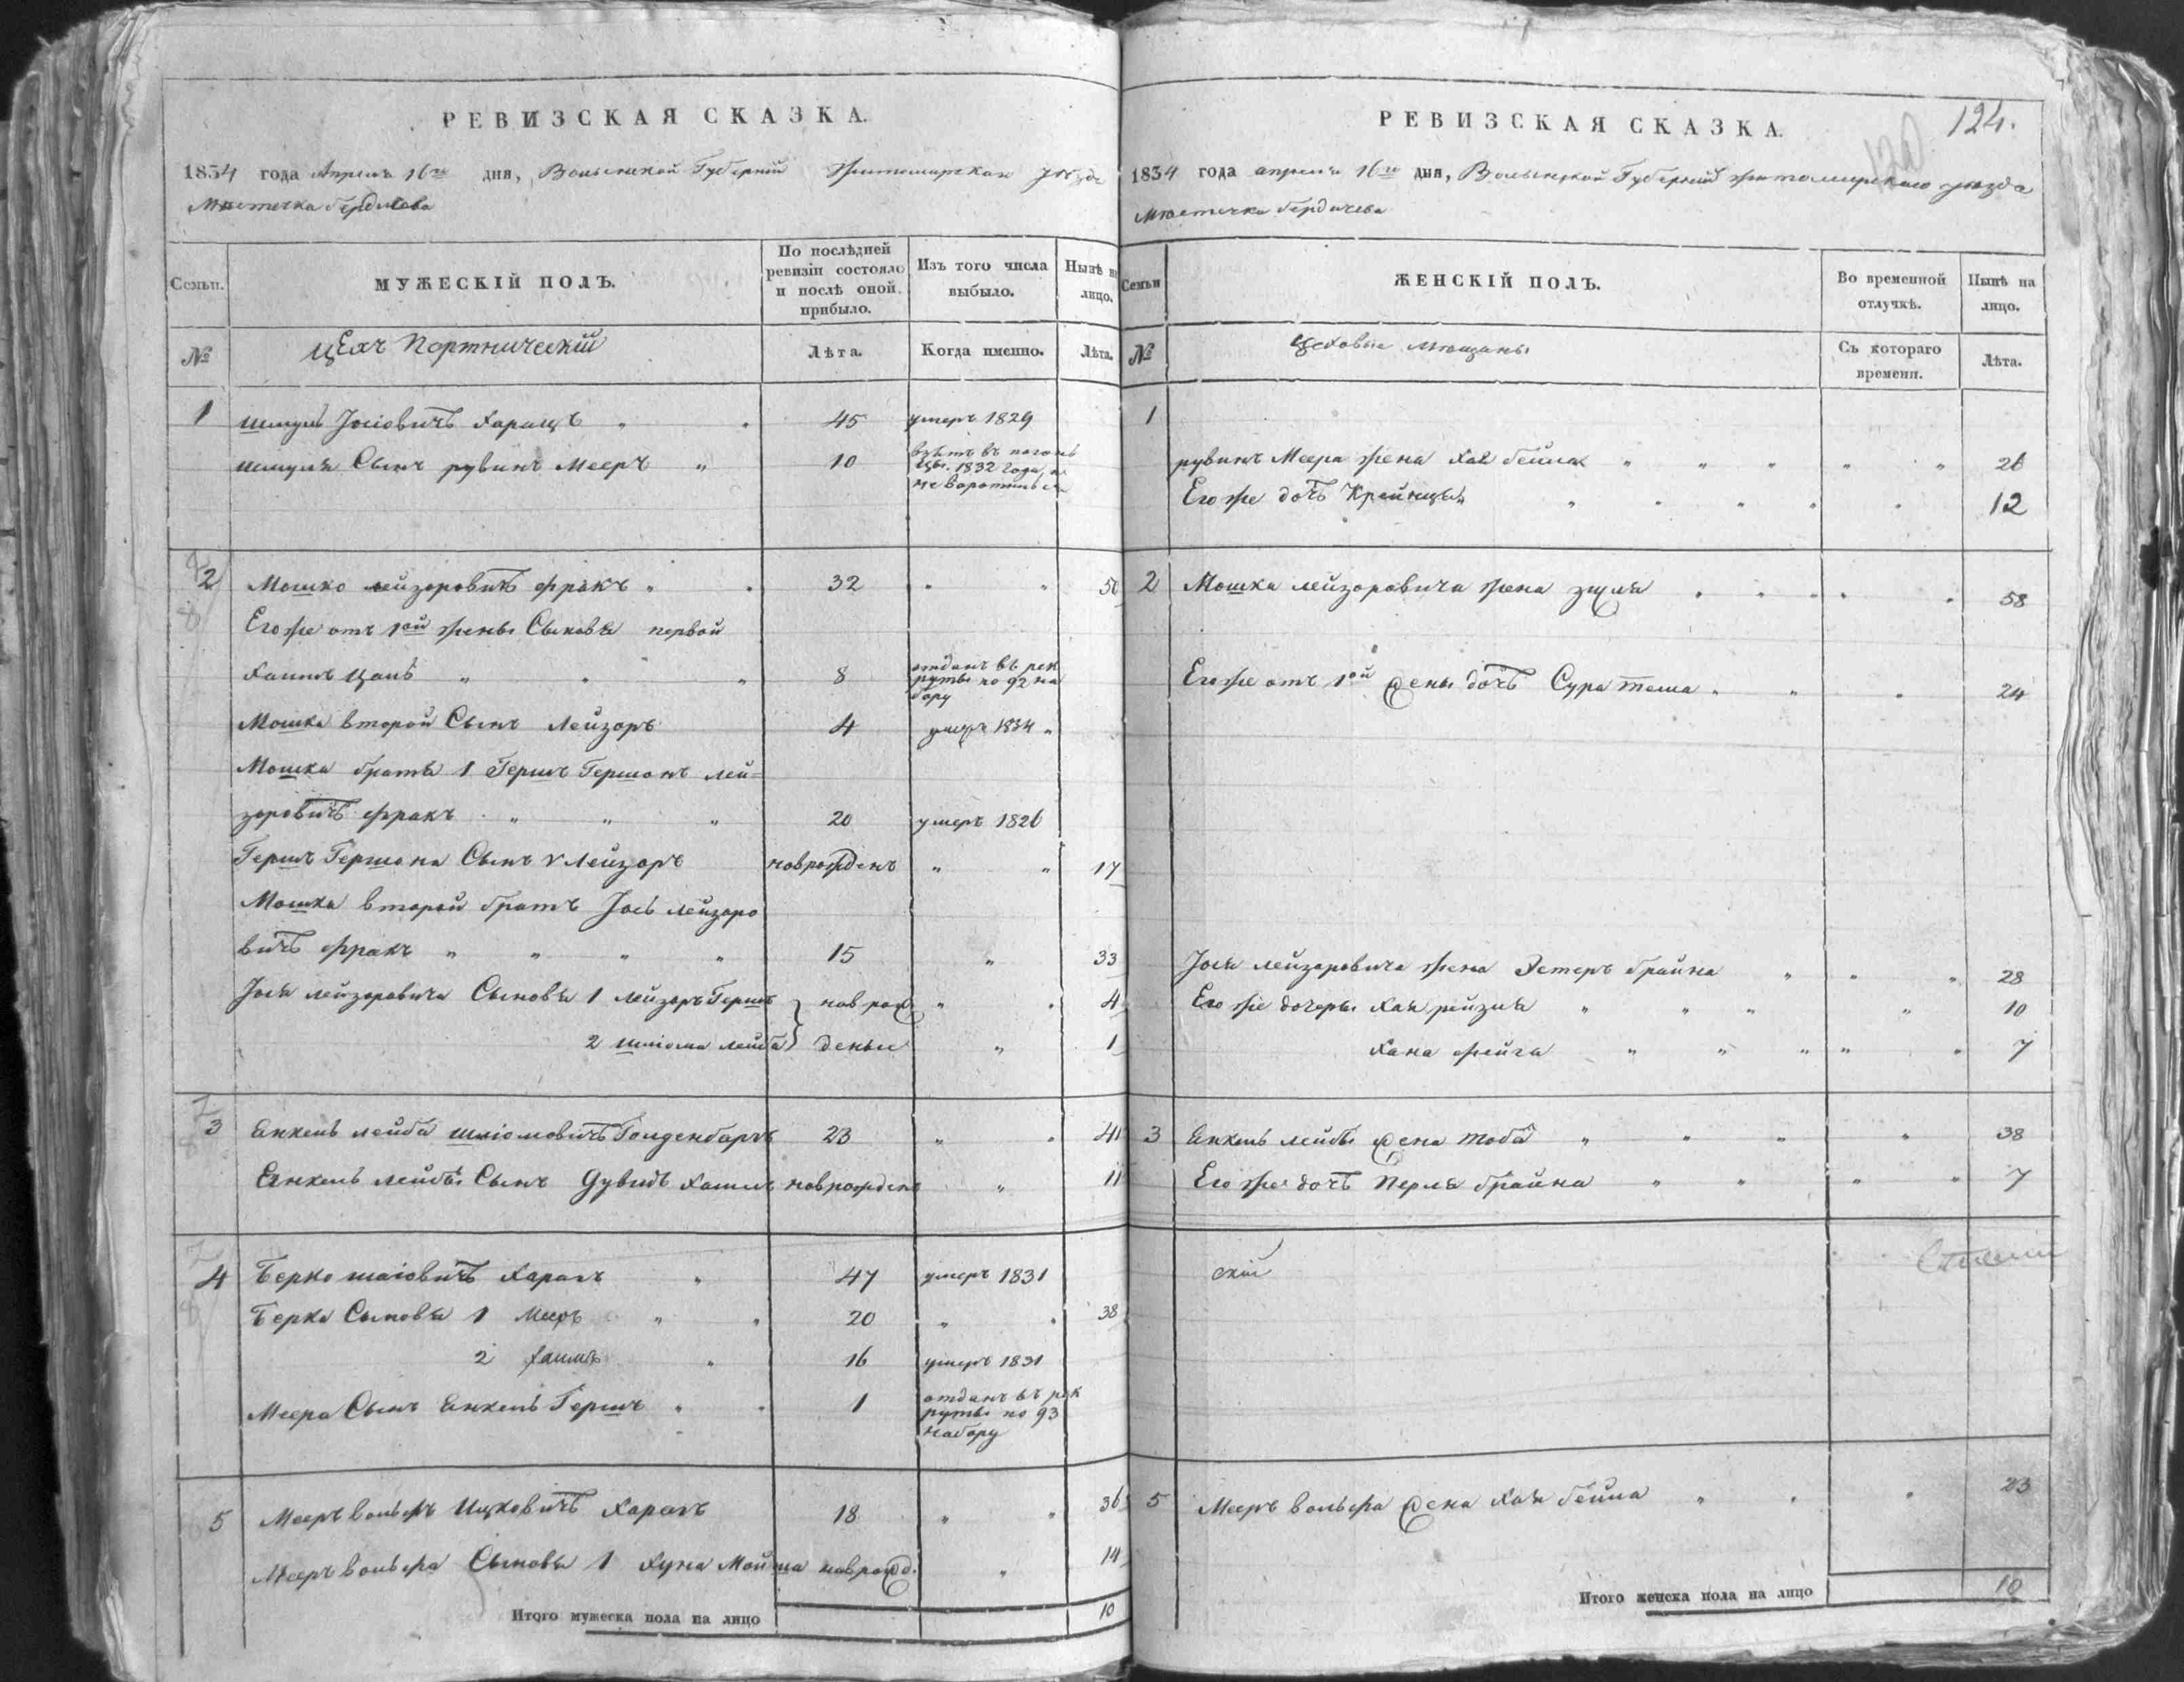 РЕВИЗСКАЯ СКАЗКА.
1834 года Апреля 16го дня, Волынской Губернии Житомирскаго уезда
Местечка Бердичева
Семьи.
МУЖЕСКІЙ ПОЛЪ.
По послѣдней ревизіи состояло и послѣ оной прибыло.
Изъ того числа выбыло.
Нынѣ на лицо.
№
Цехъ Портническій
Лѣта.
Когда именно.
Лѣта.
1 Шмуль Іосіовичъ Харацъ " " 45 умеръ 1829
Шмуля Сынъ рувинъ Мееръ " 10 взятъ въ погон 1832 года, и не воротился
2 Мошко лейзоровичъ фракъ " " 32 " " 50
Его же отъ 1ой жены Сыновья первой
Хаимъ " " " 8 отданъ въ рекруты по 92 набору
Мошка второй Сынъ Лейзоръ 4 умеръ 1834 "
Мошка братья 1 Гершъ Гершонъ лей=
зоровичъ фракъ " " " 20 умеръ 1826
Гершъ Гершона Сынъ Лейзоръ новрожденъ " " 17
Мошка второй братъ Іось лейзоро
вичъ фракъ " " " " 15 " 33
Іося лейзоровича Сыновья 1 лейзоръ Гершъ } новрож " " 4
2 шліома лейба } деные " 1
3 Янкель лейба шліомовичъ Голденбаргъ 23 " " 41
Янкель лейбы Сынъ Дувидъ Хаимъ новрожденъ " 11
4 Берко шаіовичъ Харахъ " 47 умеръ 1831
Берка Сыновья 1 Мееръ " " 20 " " 38
2 Хаимъ " 16 умеръ 1831
Меера Сынъ Янкель Гершъ " " 1 отданъ въ рекруты по 93 набору
5 Мееръ вольфъ Ицковичъ Харахъ 18 " " 36
Мееръ вольфа Сыновья 1 Хуна Мойша новрожд. " 14
Итого мужеска пола на лицо 10
РЕВИЗСКАЯ СКАЗКА.
124.
1834 года апреля 16го дня, Волынской Губерніи Житомирскаго уезда
Местечка Бердичева
Семьи
ЖЕНСКІЙ ПОЛЪ.
Во временной отлучкѣ.
Нынѣ на лицо.
№
Цеховые Мещаны
Съ котораго времени.
Лѣта.
1
рувинъ Меера жена Хая бейла " " " " " 26
Его же дочь Крейнця " " " " " 12
2 Мошка лейзоровича жена " " " " " 58
Его же отъ 1ой жены дочь Сура " " " 24
Іося лейзоровича жена Эстеръ брайна " " " 28
Его же дочеры Хая рейзля " " " " 10
Хана фейга " " " " " 7
3 Янкель лейбы жена Тоба " " " " 38
Его же дочь Перля брайна " " " " 7
5 Мееръ вольфа жена Хая бейла " " " 23
Итого женска пола на лицо 10